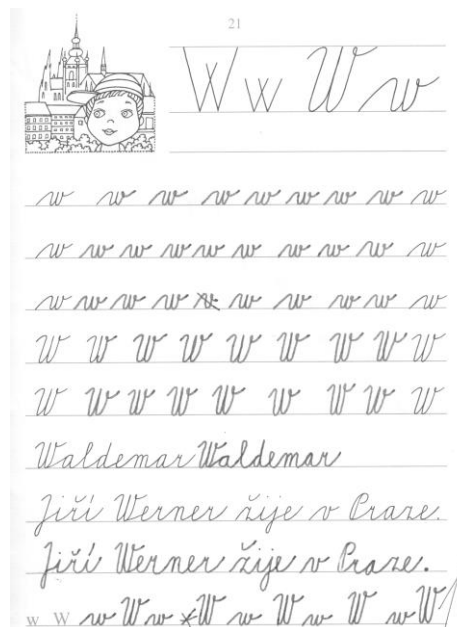 21
W w W w
w w w w w w w w w w
w w w w w w w w w w
w w w w w w w w w w
W W W W W W W W W
W W W W W W W W W
Waldemar Waldemar
Jiří Werner žije v Praze.
Jiří Werner žije v Praze.
w W w W w W w W w W w W